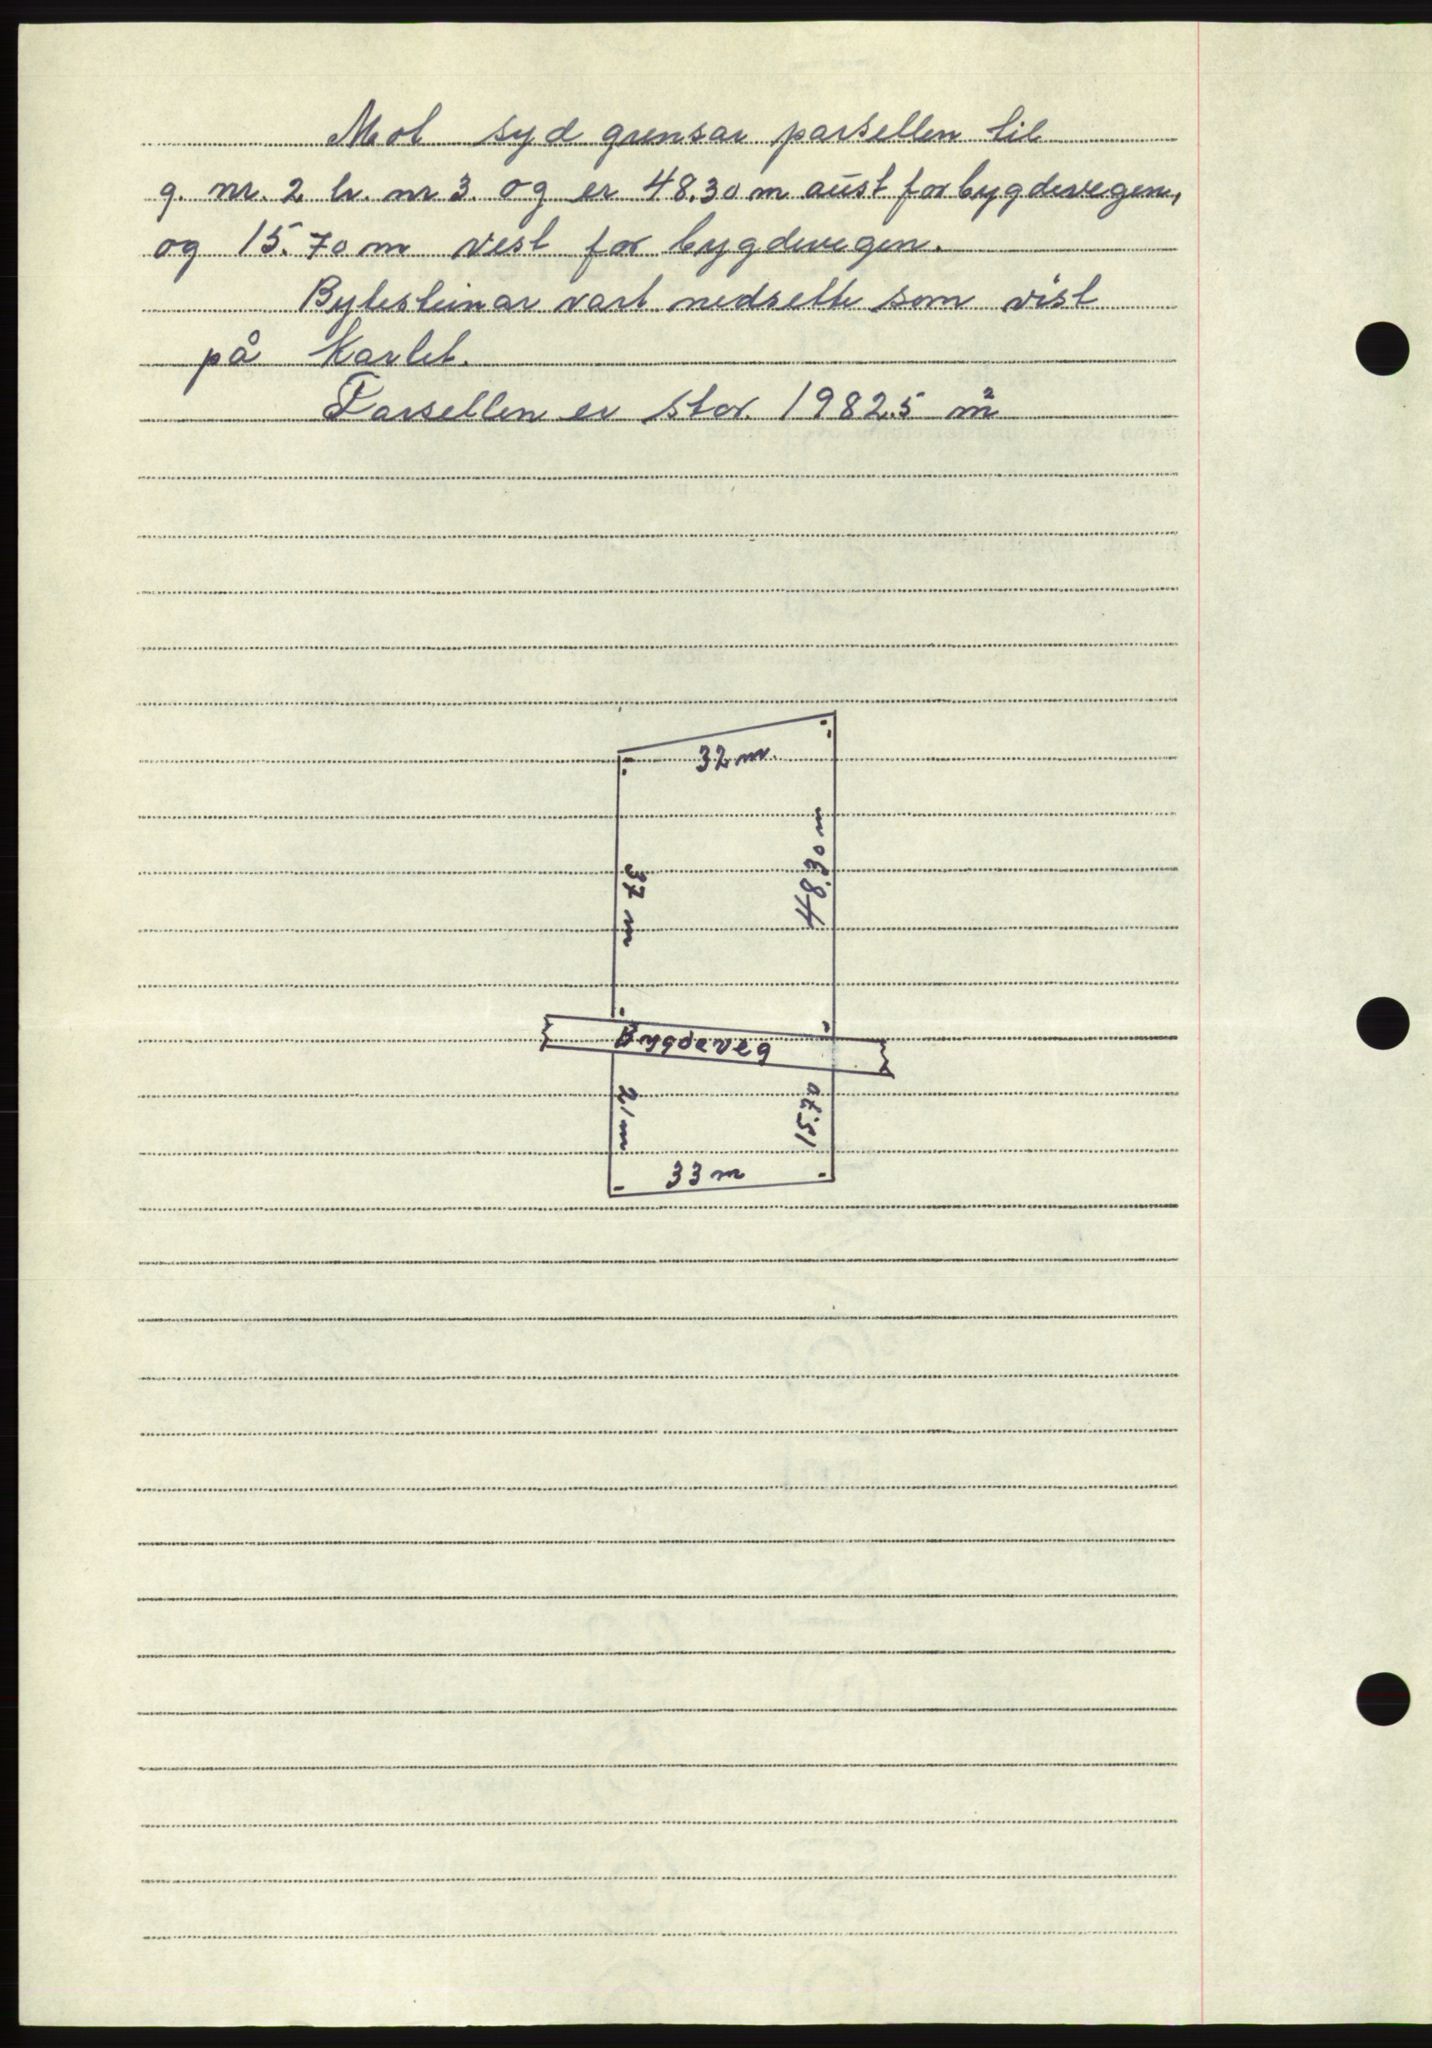 Mot syd grensar parsellen til
g. nr. 2 br. nr 3. og er 48.30 m aust for bygdevegen,
og 15.70 m vest for bygdevegen.
Bytesteinar vart nedsette som vist
på Kartet.
Parsellen er stor 1982.5 m²
32 m.
37 m
48.30 m
Bygdeveg
21 m
15.70
33 m